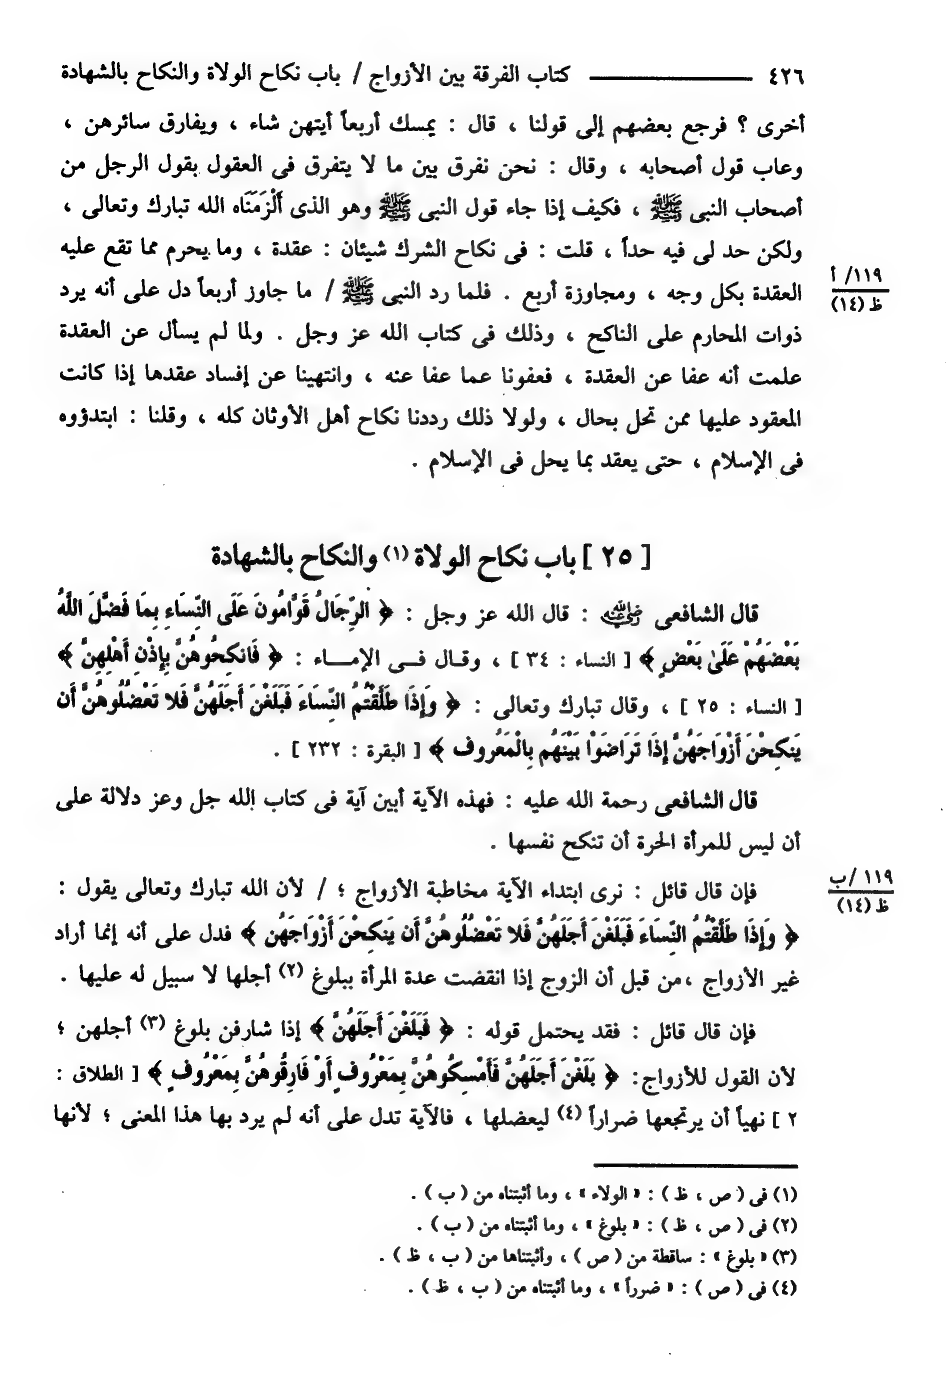 ٤٢٦ ——— كتاب الفرقة بين الأزواج / باب نكاح الولاة والنكاح بالشهادة
أخرى ؟ فرجع بعضهم إلى قولنا ، قال : يمسك أربعاً أيتهن شاء ، ويفارق سائرهن ،
وعاب قول أصحابه ، وقال : نحن نفرق بين ما لا يتفرق فى العقول بقول الرجل من
أصحاب النبى ﷺ ، فكيف إذا جاء قول النبى ﷺ وهو الذى أَلْزَمَنَاه الله تبارك وتعالى ،
ولكن حد لى فيه حداً ، قلت : فى نكاح الشرك شيئان : عقدة ، وما يحرم مما تقع عليه
العقدة بكل وجه ، ومجاوزة أربع . فلما رد النبى ﷺ / ما جاوز أربعاً دل على أنه يرد
١١٩/ أ
ظ (١٤)
ذوات المحارم على الناكح ، وذلك فى كتاب الله عز وجل . ولما لم يسأل عن العقدة
علمت أنه عفا عن العقدة ، فعفونا عما عفا عنه ، وانتهينا عن إفساد عقدها إذا كانت
المعقود عليها ممن تحل بحال ، ولولا ذلك رددنا نكاح أهل الأوثان كله ، وقلنا : ابتدؤوه
فى الإسلام ، حتى يعقد بما يحل فى الإسلام .
[ ٢٥ ] باب نكاح الولاة (١) والنكاح بالشهادة
قال الشافعى رضي الله عنه : قال الله عز وجل : ﴿ الرِّجَالُ قَوَّامُونَ عَلَى النِّسَاءِ بِمَا فَضَّلَ اللَّهُ
بَعْضَهُمْ عَلَىٰ بَعْضٍ ﴾ [ النساء : ٣٤ ] ، وقال فى الإماء : ﴿ فَانكِحُوهُنَّ بِإِذْنِ أَهْلِهِنَّ ﴾
[ النساء : ٢٥ ] ، وقال تبارك وتعالى : ﴿ وَإِذَا طَلَّقْتُمُ النِّسَاءَ فَبَلَغْنَ أَجَلَهُنَّ فَلا تَعْضُلُوهُنَّ أَن
يَنكِحْنَ أَزْوَاجَهُنَّ إِذَا تَرَاضَوْا بَيْنَهُم بِالْمَعْرُوفِ ﴾ [ البقرة : ٢٣٢ ] .
قال الشافعى رحمة الله عليه : فهذه الآية أبين آية فى كتاب الله جل وعز دلالة على
أن ليس للمرأة الحرة أن تنكح نفسها .
فإن قال قائل : نرى ابتداء الآية مخاطبة الأزواج ؛ / لأن الله تبارك وتعالى يقول :
١١٩ /ب
ظ (١٤)
﴿ وَإِذَا طَلَّقْتُمُ النِّسَاءَ فَبَلَغْنَ أَجَلَهُنَّ فَلا تَعْضُلُوهُنَّ أَن يَنكِحْنَ أَزْوَاجَهُن ﴾ فدل على أنه إنما أراد
غير الأزواج ،من قبل أن الزوج إذا انقضت عدة المرأة ببلوغ (٢) أجلها لا سبيل له عليها .
فإن قال قائل : فقد يحتمل قوله : ﴿ فَبَلَغْنَ أَجَلَهُنَّ ﴾ إذا شارفن بلوغ (٣) أجلهن ؛
لأن القول للأزواج: ﴿ بَلَغْنَ أَجَلَهُنَّ فَأَمْسِكُوهُنَّ بِمَعْرُوفٍ أَوْ فَارِقُوهُنَّ بِمَعْرُوفٍ ﴾ [ الطلاق :
٢ ] نهياً أن يرتجعها ضراراً (٤) ليعضلها ، فالآية تدل على أنه لم يرد بها هذا المعنى ؛ لأنها
(١) فى ( ص ، ظ ) : « الولاء » ، وما أثبتناه من ( ب ) .
(٢) فى ( ص ، ظ ) : « بلوغ » ، وما أثبتناه من ( ب ) .
(٣) « بلوغ » : ساقطة من ( ص ) ، وأثبتناها من ( ب ، ظ ) .
(٤) فى ( ص ) : « ضرراً » ، وما أثبتناه من ( ب ، ظ ) .